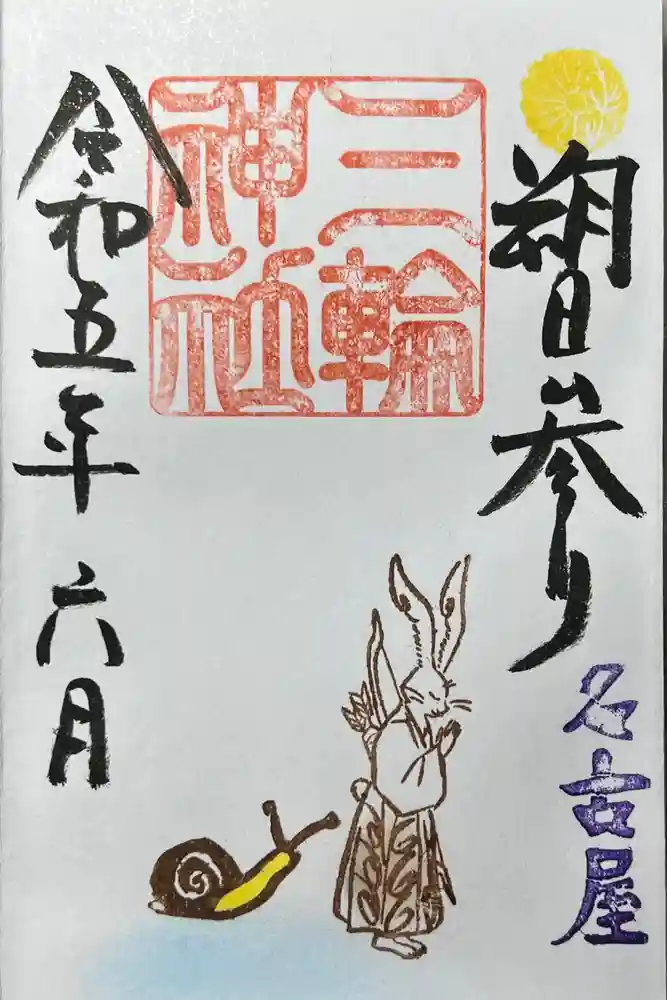 朔日参り
名古屋
三輪
神社
令和五年六月